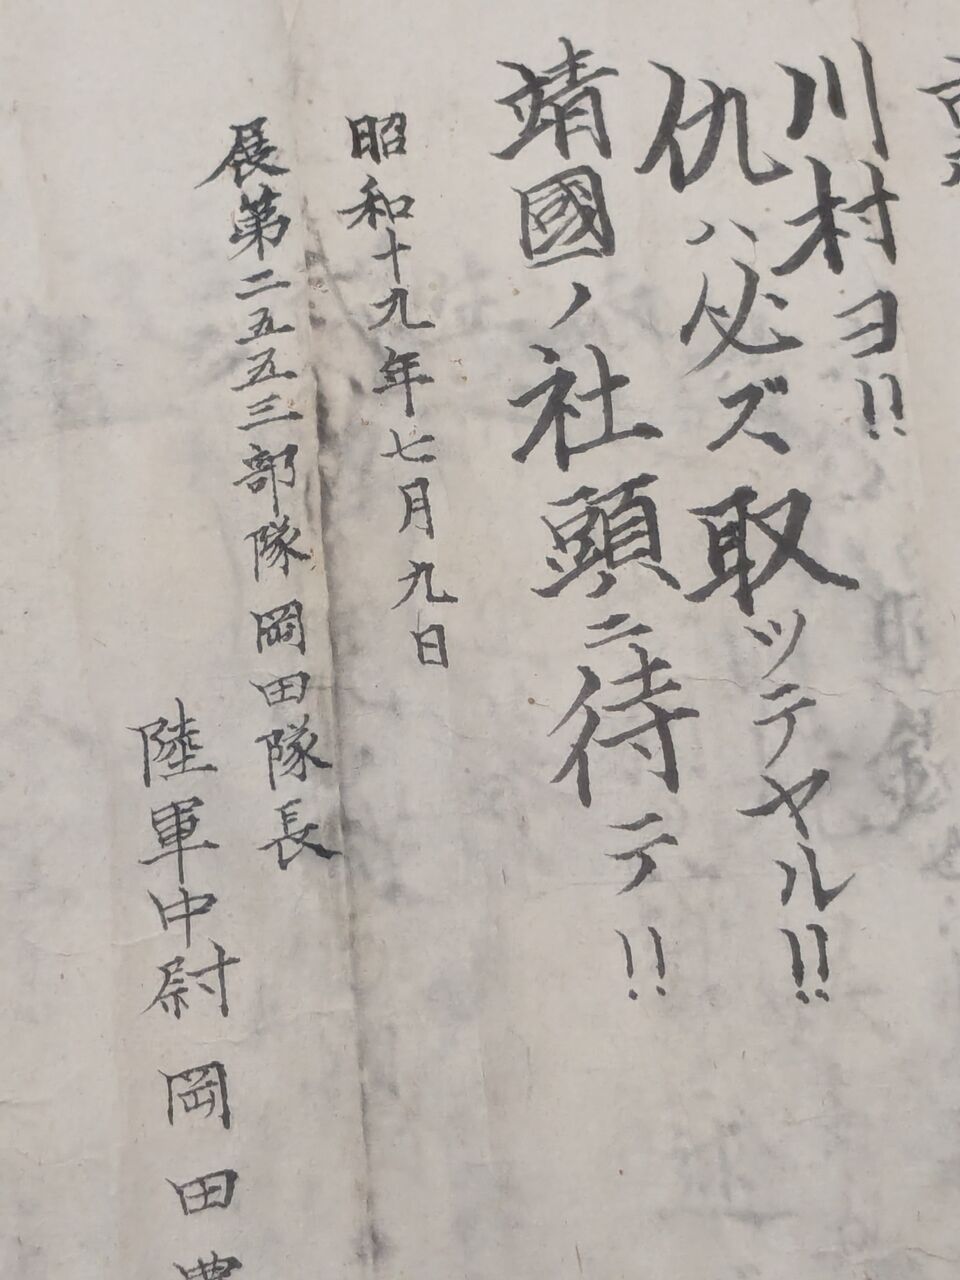 川村ヨ!!
仇ハ必ズ取ッテヤル!!
靖國ノ社頭ニ待テ!!
昭和十九年七月九日
展第二五五三部隊岡田隊長
陸軍中尉 岡田